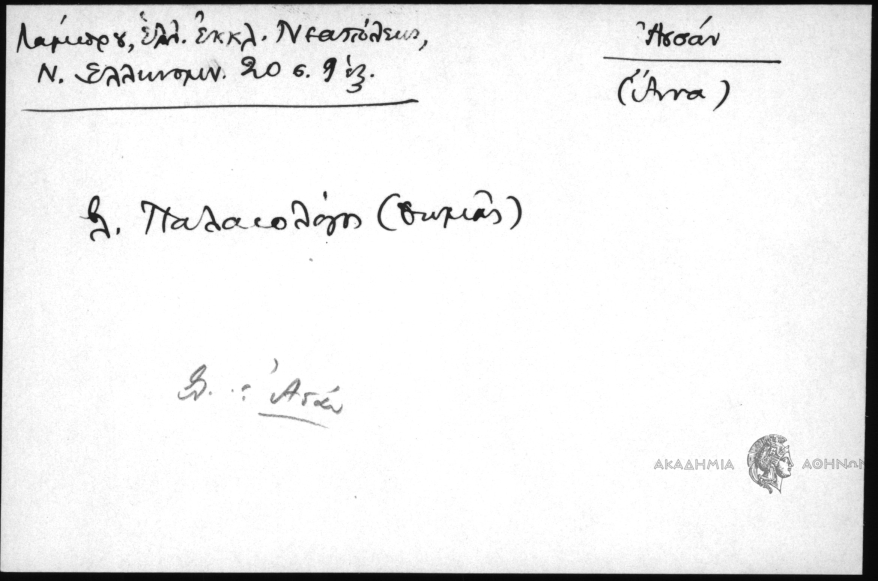 Λάμπρου, Ἑλλ. Ἐκκλ. Νεαπόλεως,
Ν. Ἑλληνομν. 20 σ. 9 ἑξ.
Ἀσσάν
(Ἄννα)
βλ. Παλαιολόγος (Θωμᾶς)
βλ. : Ἀσάν
ΑΚΑΔΗΜΙΑ ΑΘΗΝΩΝ